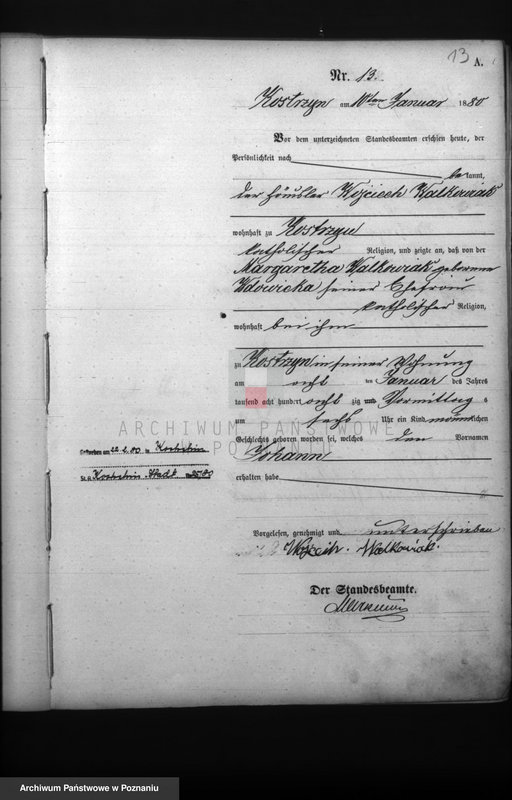 13 A.
Nr. 13.
Kostrzyn am 10ten Januar 1880
Vor dem unterzeichneten Standesbeamten erschien heute, der
Persönlichkeit nach
bekannt,
der Häusler Wojciech Walkowiak
wohnhaft zu Kostrzyn
katholischer Religion, und zeigte an, daß von der
Margaretha Walkowiak geborenen
Wdowicka seiner Ehefrau
katholischer Religion,
wohnhaft bei ihm
zu Kostrzyn in seiner Wohnung
am acht ten Januar des Jahres
tausend acht hundert acht zig und Vormittag s
um sechs Uhr ein Kind männlichen
Geschlechts geboren worden sei, welches den Vornamen
Johann
erhalten habe
Gestorben am 22.2.80 in
St. A. Stadt
Vorgelesen, genehmigt und unterschrieben
Wojciech Walkowiak.
Der Standesbeamte.
ARCHIWUM PAŃSTWOWE
W POZNANIU
Archiwum Państwowe w Poznaniu